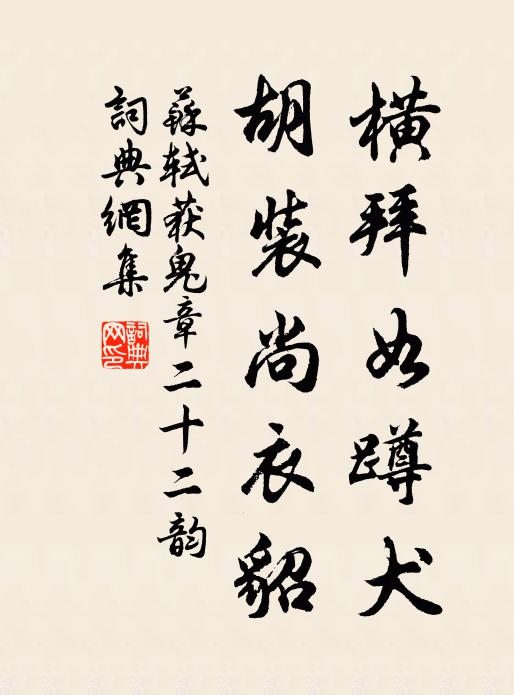 橫拜如蹲犬
胡裝尚衣貂
蘇軾获鬼章二十二韵
詞典網集
詞典網印